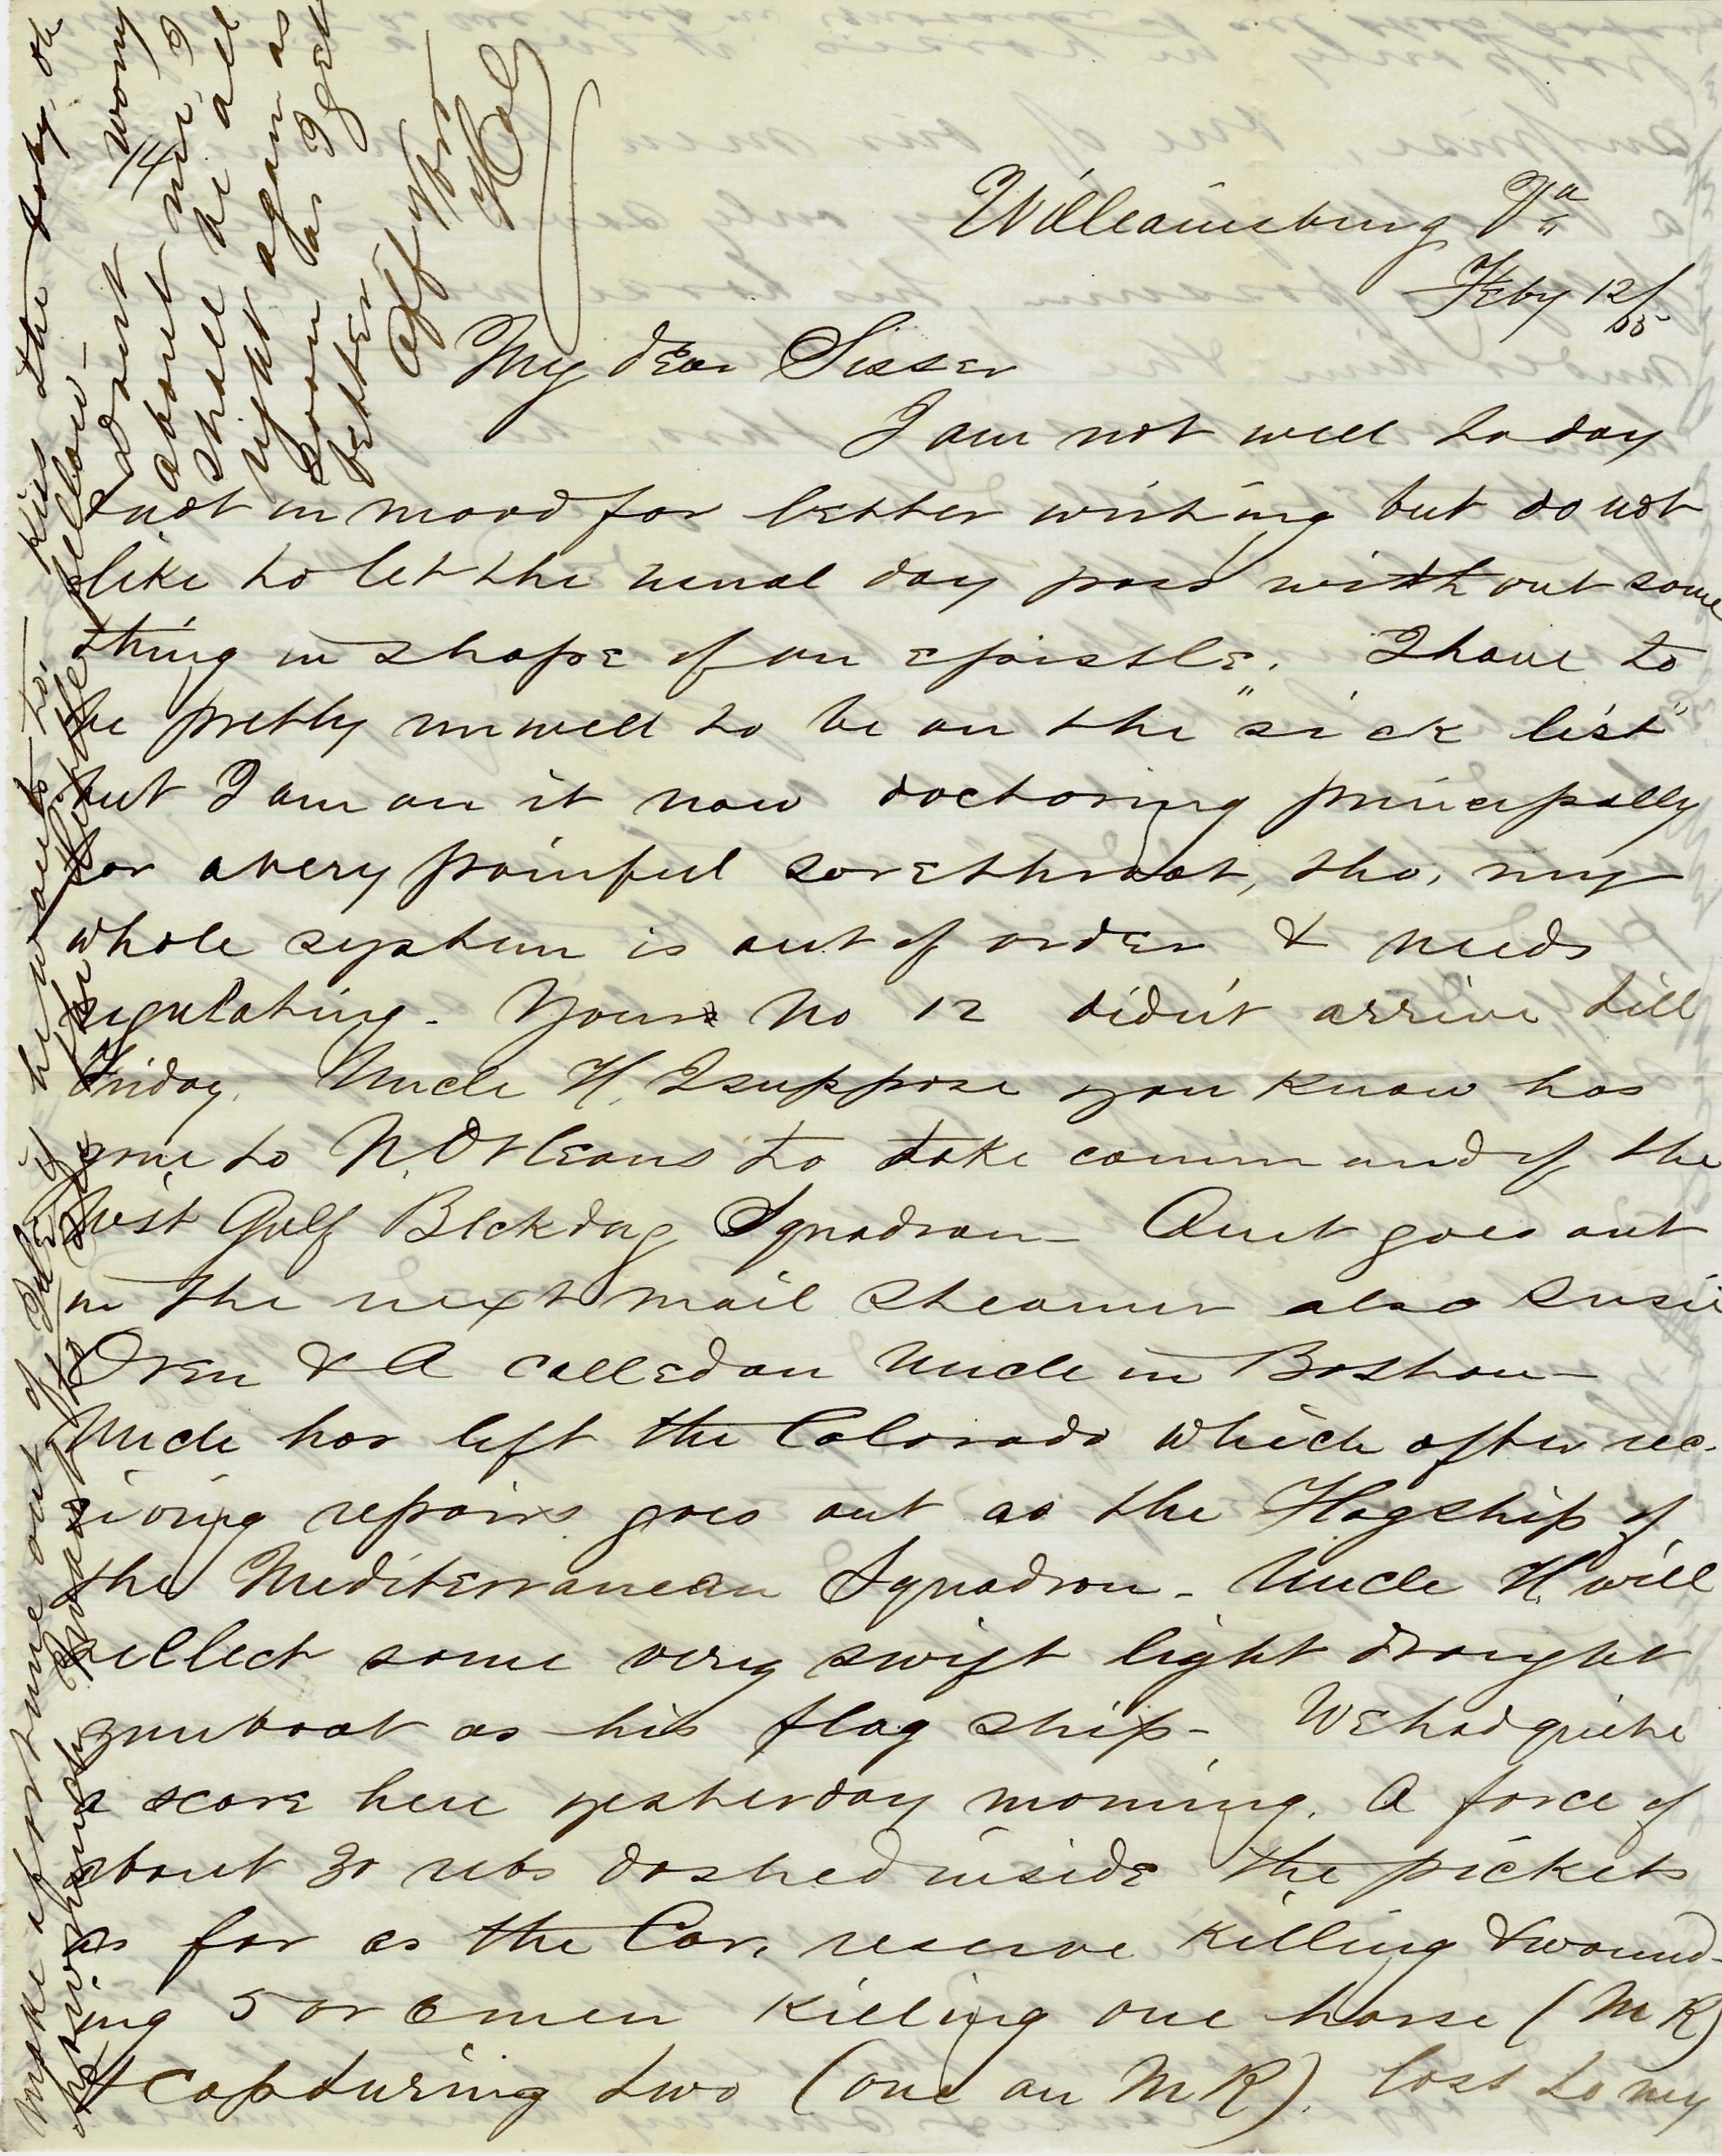 14
Williamsburg Va
Feby 12/65
My dear Sister
I am not well today
& not in mood for letter writing but do not
like to let the usual day pass without some
thing in shape of an epistle. I have to
be pretty unwell to be on the "sick list"
but I am on it now doctoring principally
for a very painful sorethroat, tho, my
whole system is out of order & needs
regulating. Yours No 12 didn't arrive till
Friday. Uncle H. I suppose you know has
gone to N. Orleans to take command of the
West Gulf Blckdng Squadron— Aunt goes out
in the next mail steamer also Susie
Oren & A called on Uncle in Boston—
Uncle has left the Colorado which after rec-
eiving repairs goes out as the Flagship of
the Mediterranean Squadron— Uncle H. will
sellect some very swift light draught
gunboat as his flag ship— We had quite
a scare here yesterday morning. A force of
about 30 rebs dashed inside the pickets
as far as the Cav. reserve killing & wound-
ing 5 or 6 men killing one horse (M R)
& capturing two (one an M R). loss to my
make a fortune out of
he wants to— kiss the baby, ok
the little fellow—
dont worry
about me, I
shall be all
right again as
soon as I get
better
Aff Yr Bro
Hal